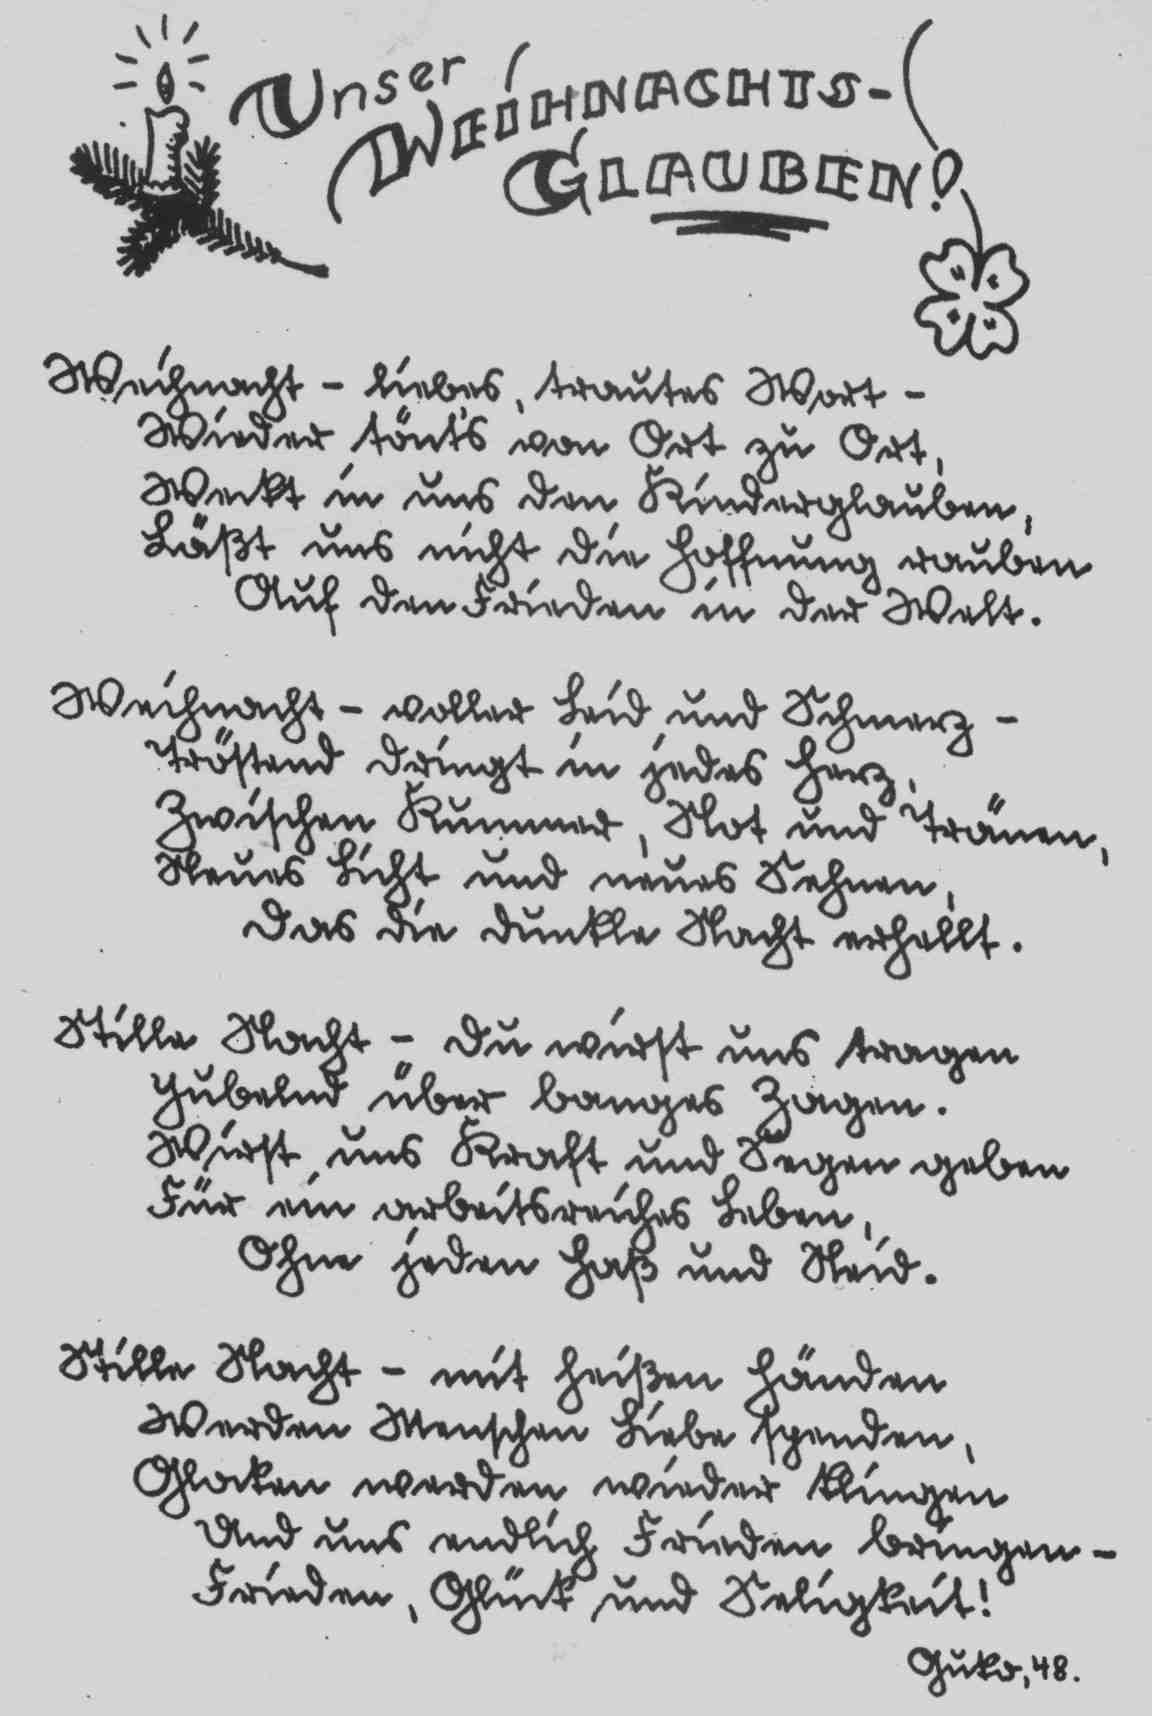 Unser
WEIHNACHTS-
GLAUBEN!
Weihnacht - liebes, trautes Wort -
Wieder tönt's von Ort zu Ort,
Weckt in uns den Kinderglauben,
Läßt uns nicht die Hoffnung rauben
Auf den Frieden in der Welt.
Weihnacht - voller Leid und Schmerz -
Tröstend dringt in jedes Herz,
Zwischen Kummer, Not und Tränen,
Neues Licht und neues Sehnen,
Das die dunkle Nacht erhellt.
Stille Nacht - Du wirst uns tragen
Jubelnd über banges Zagen.
Wirst uns Kraft und Segen geben
Für ein arbeitsreiches Leben,
Ohne jeden Haß und Neid.
Stille Nacht - mit heißen Händen
Werden Menschen Liebe spenden,
Glocken werden wieder klingen
Und uns endlich Frieden bringen -
Frieden, Glück und Seligkeit!
Guko, 48.